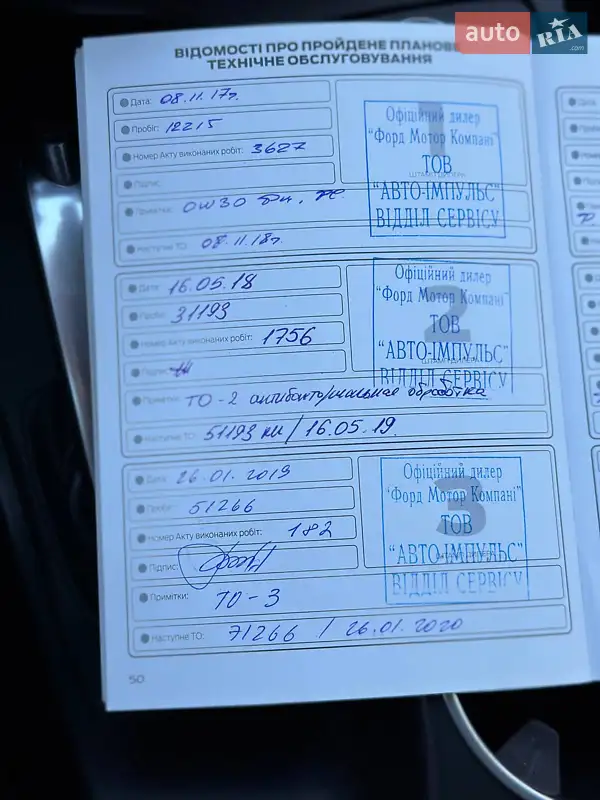 auto RIA .com
ВІДОМОСТІ ПРО ПРОЙДЕНЕ ПЛАНОВЕ
ТЕХНІЧНЕ ОБСЛУГОВУВАННЯ
Дата: 08.11.17г.
Пробіг: 12215
Номер Акту виконаних робіт: 3627
Підпис:
Примітки:
Наступне ТО: 08.11.18г.
1
Офіційний дилер
"Форд Мотор Компані"
ТОВ
"АВТО-ІМПУЛЬС"
ВІДДІЛ СЕРВІСУ
Дата: 16.05.18
Пробіг: 31193
Номер Акту виконаних робіт: 1756
Підпис:
Примітки: ТО-2 антибактериальная обработка
Наступне ТО: 51193 км / 16.05.19.
2
Офіційний дилер
"Форд Мотор Компані"
ТОВ
"АВТО-ІМПУЛЬС"
ВІДДІЛ СЕРВІСУ
Дата: 26.01.2019
Пробіг: 51266
Номер Акту виконаних робіт: 182
Підпис:
Примітки: ТО-3
Наступне ТО: 71266 / 26.01.2020
3
Офіційний дилер
"Форд Мотор Компані"
ТОВ
"АВТО-ІМПУЛЬС"
ВІДДІЛ СЕРВІСУ
50